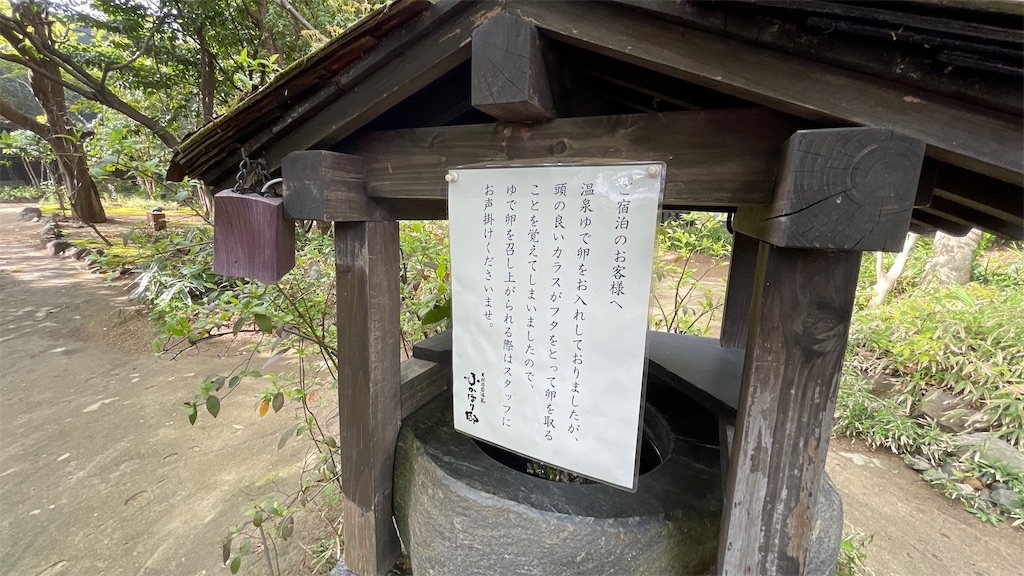 ご宿泊のお客様へ
温泉ゆで卵をお入れしておりましたが、
頭の良いカラスがフタをとって卵を取る
ことを覚えてしまいましたので、
ゆで卵を召し上がられる際はスタッフに
お声掛けくださいませ。
ふかほり邸